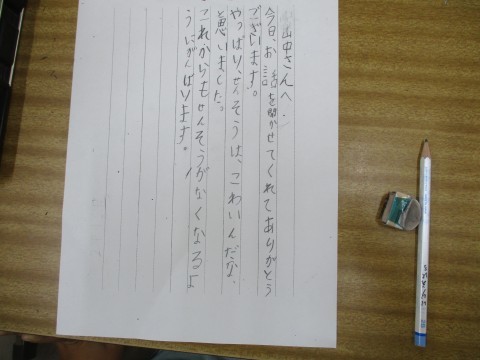 山中さんへ
今日、お話を聞かせてくれてありがとう
ございます。
やっぱり、せんそうは、こわいんだな、
と思いました。
これからもせんそうがなくなるよ
うにがんばります。